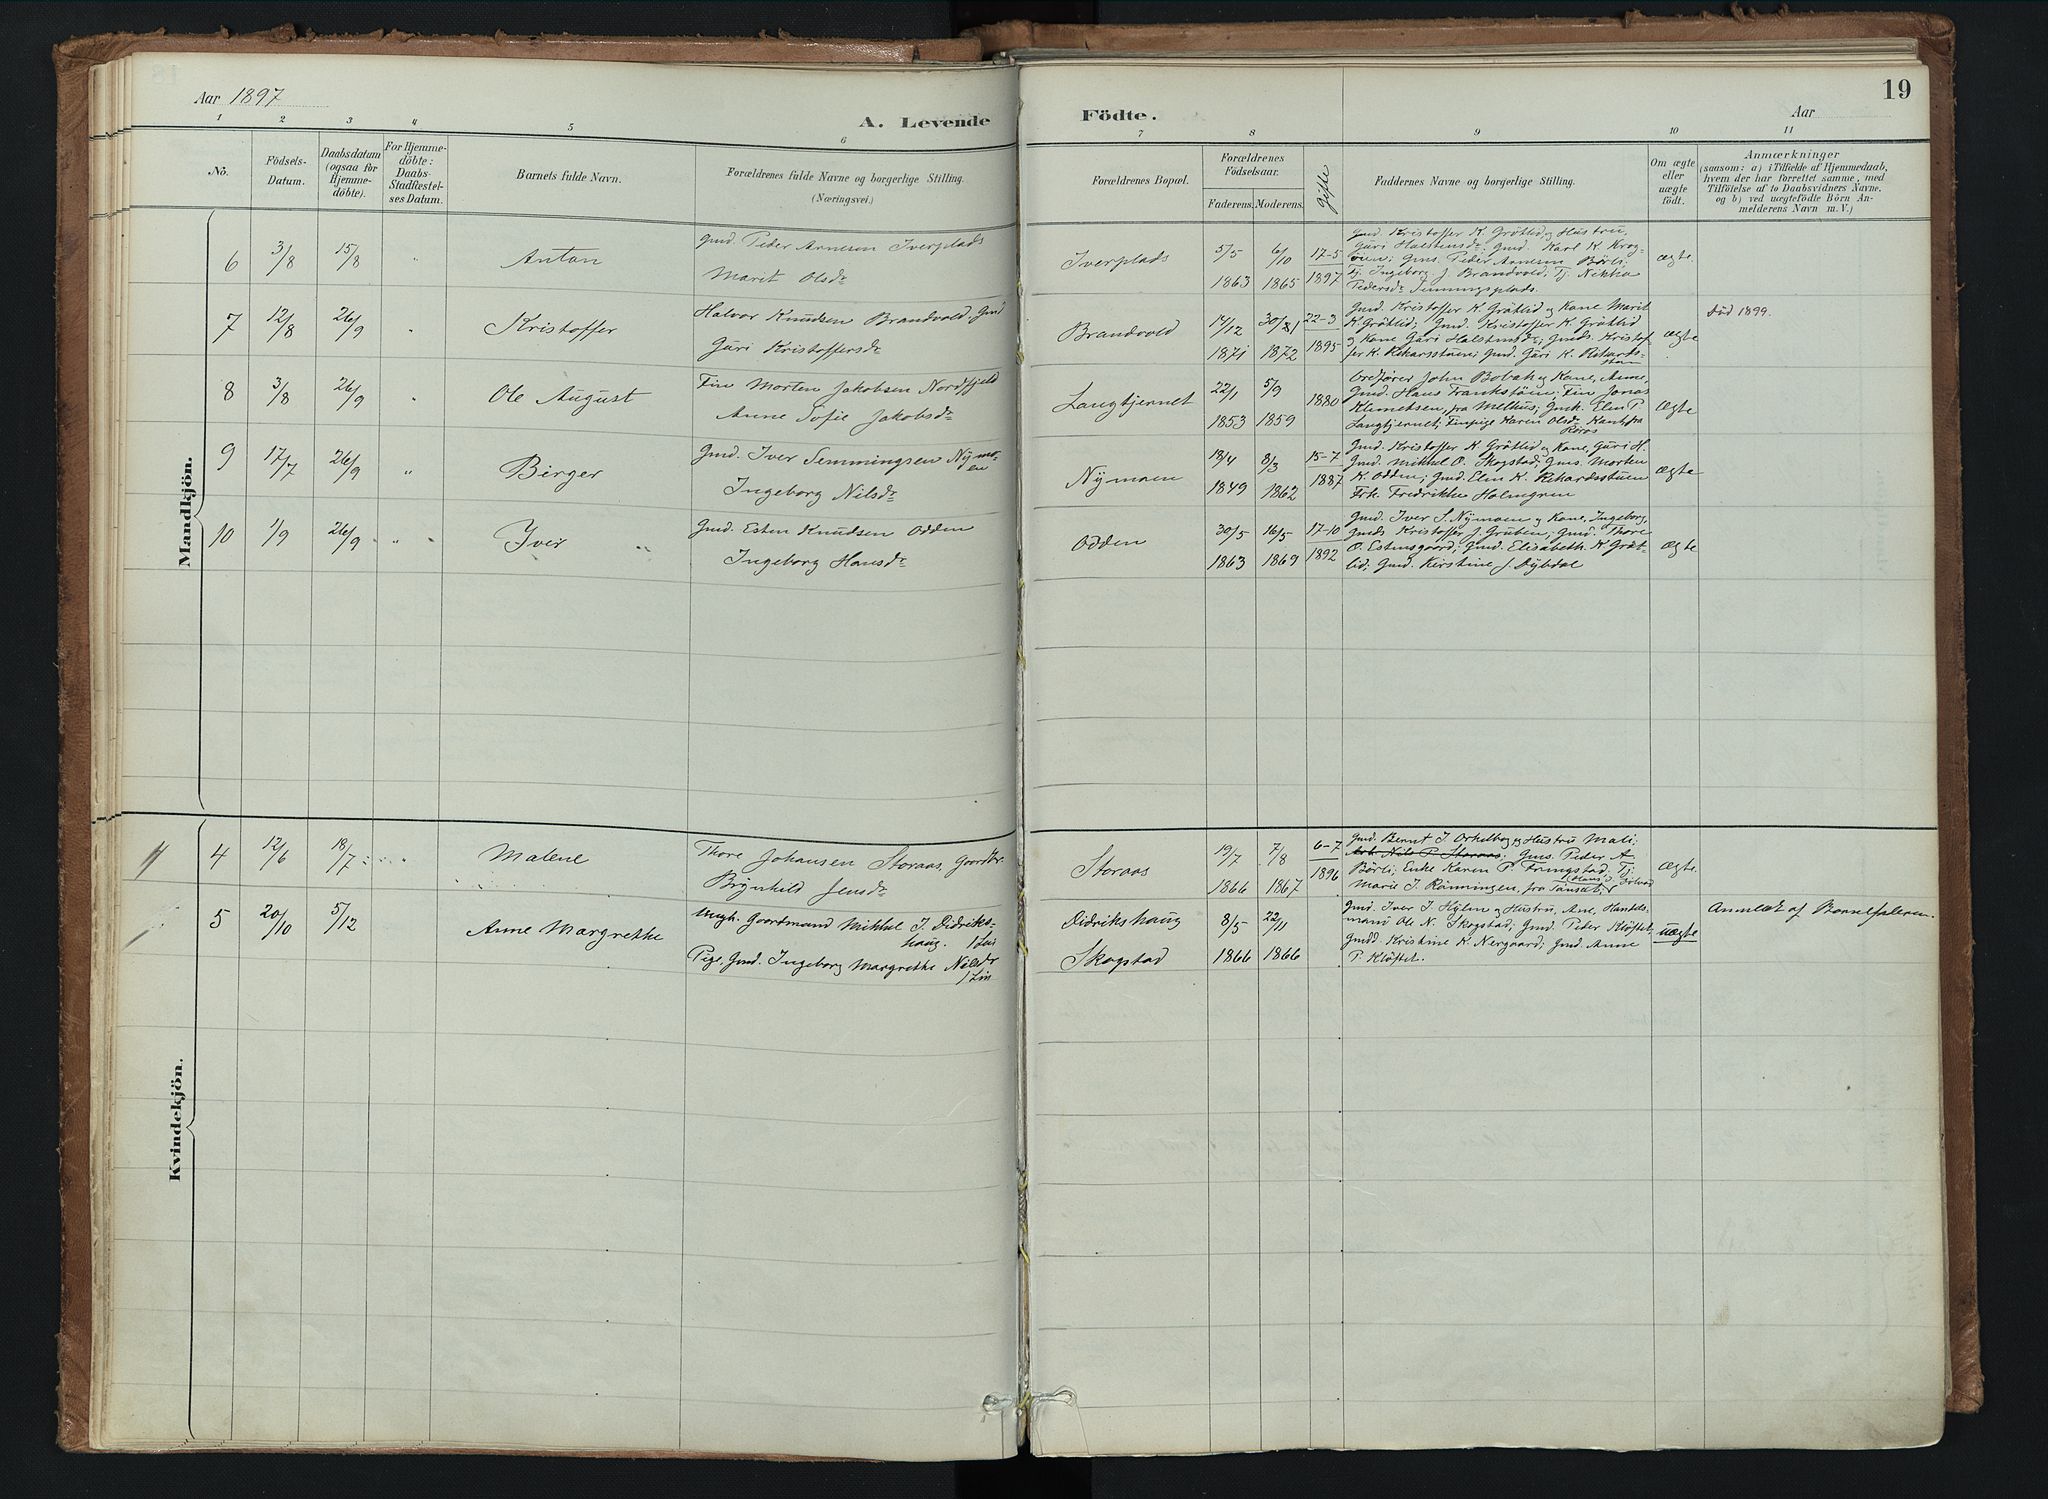 Aar 1897
A. Levende Födte.
19
Aar
1 2 3 4 5 6 7 8 9 10 11
No.
Födsels-Datum.
Daabsdatum (ogsaa for Hjemmedöbte).
For Hjemmedöbte: Daabs-Stadfæstelses Datum.
Barnets fulde Navn.
Forældrenes fulde Navne og borgerlige Stilling.
(Næringsvei.)
Forældrenes Bopæl.
Forældrenes Födselsaar.
Faderens. Moderens.
Gifte
Faddernes Navne og borgerlige Stilling.
Om ægte eller uægte födt.
Anmærkninger
(saasom: a) i Tilfælde af Hjemmedaab, hvem der har forrettet samme, med Tilföielse af to Daabsvidners Navne, og b) ved uægtefödte Börn Anmelderens Navn m. V.)
Mandkjön.
6 3/8 15/8 " Anton
Gmd. Peder Arnesen Iverplads
Marit Olsdr
Iverplads
5/5 6/10 17-5
1863 1865 1897
Gmd. Kristoffer K. Grötlid og Hustru,
Guri Halstensdr; Gmd. Karl K. Krog-
öien; Gms. Peder Arnesen Börli;
Tj. Ingeborg J. Brandvold; Tj. Nikka
Pedersdr Semmingsplads.
ægte.
7 12/8 26/9 " Kristoffer
Halvor Knudsen Brandvold, Gmd
Guri Kristoffersdr
Brandvold
14/12 30/8 22-3
1871 1872 1895
Gmd. Kristoffer K. Grötlid og Kone Marit
K. Grötlid; Gmd. Kristoffer K. Grötlid
og Kone Guri Halstensdr; Gmds. Kristof-
fer K. Rekarsstuen; Gmd. Guri K. Rekards-
stuen
ægte
død 1899.
8 3/8 26/9 " Ole August
Fin Morten Jakobsen Nordfjeld
Anne Sofie Jakobsdr
Langtjernet
22/1 5/9 1880
1853 1859
Ordfører John Bobak og Kone, Anne,
Gmd. Hans Frankstöen; Fin Jonas
Klemetsen, fra Melhus; Gmk. Elen P.
Langtjernet; Finpige Karen Olsdr Kant, fra
Röros
Ægte
9 17/7 26/9 " Birger
Gmd. Iver Semmingsen Nymo-
en
Ingeborg Nilsdr
Nymoen
18/4 8/3 15-7
1849 1862 1887
Gmd. Kristoffer K. Gröttid og Kone, Guri H.
Gmd. Mikkel O. Skogstad; Gms. Morten
K. Odden; Gmd. Elen K. Rekardsstuen
Frk. Fredrikke Holmgren
Ægte
10 1/9 26/9 " Iver
Gmd. Esten Knudsen Odden
Ingeborg Hansdr
Odden
30/5 16/5 17-10
1863 1869 1892
Gmd. Iver S. Nymoen og Kone, Ingeborg,
Gmds Kristoffer J. Gruben; Gmd. Thore
O. Estensgaard; Gmd. Elisabeth K Gröt-
lid; Gmd. Kirstine J. Dybdal
Ægte
Kvindekjön.
4 12/6 18/7 Malene
Thore Johansen Storaas, Gaardbr.
Brynhild Jensdr
Storaas
19/7 7/8 6-7
1866 1867 1896
Gmd. Bernt J Orkelbog og Hustru Mali;
Arb. Nils P. Storaas; Gms. Peder A
Börli; Enke Karen P. Frengstad; Tj.
Marie J. Rönningen, fra Tönset;
Ægte.
5 20/10 5/12 Anne Margrethe
Ungk. Gaardmand Mikkel I. Didriks-
haug. / Lui
Pige. Gmd. Ingeborg Margrethe Nilsdr
/ Lui
Didrikshaug
Skogstad
8/5 22/11
1866 1866
Gmd. Iver I. Hylen og Hustru, Ane, Handels-
mand Ole N. Skogstad; Gmd. Peder Klöftet,
Gmdd. Kristine K. Nergaard; Gmd. Anne
P. Klöftet.
uægte
Anmeldt af Barnefaderen.